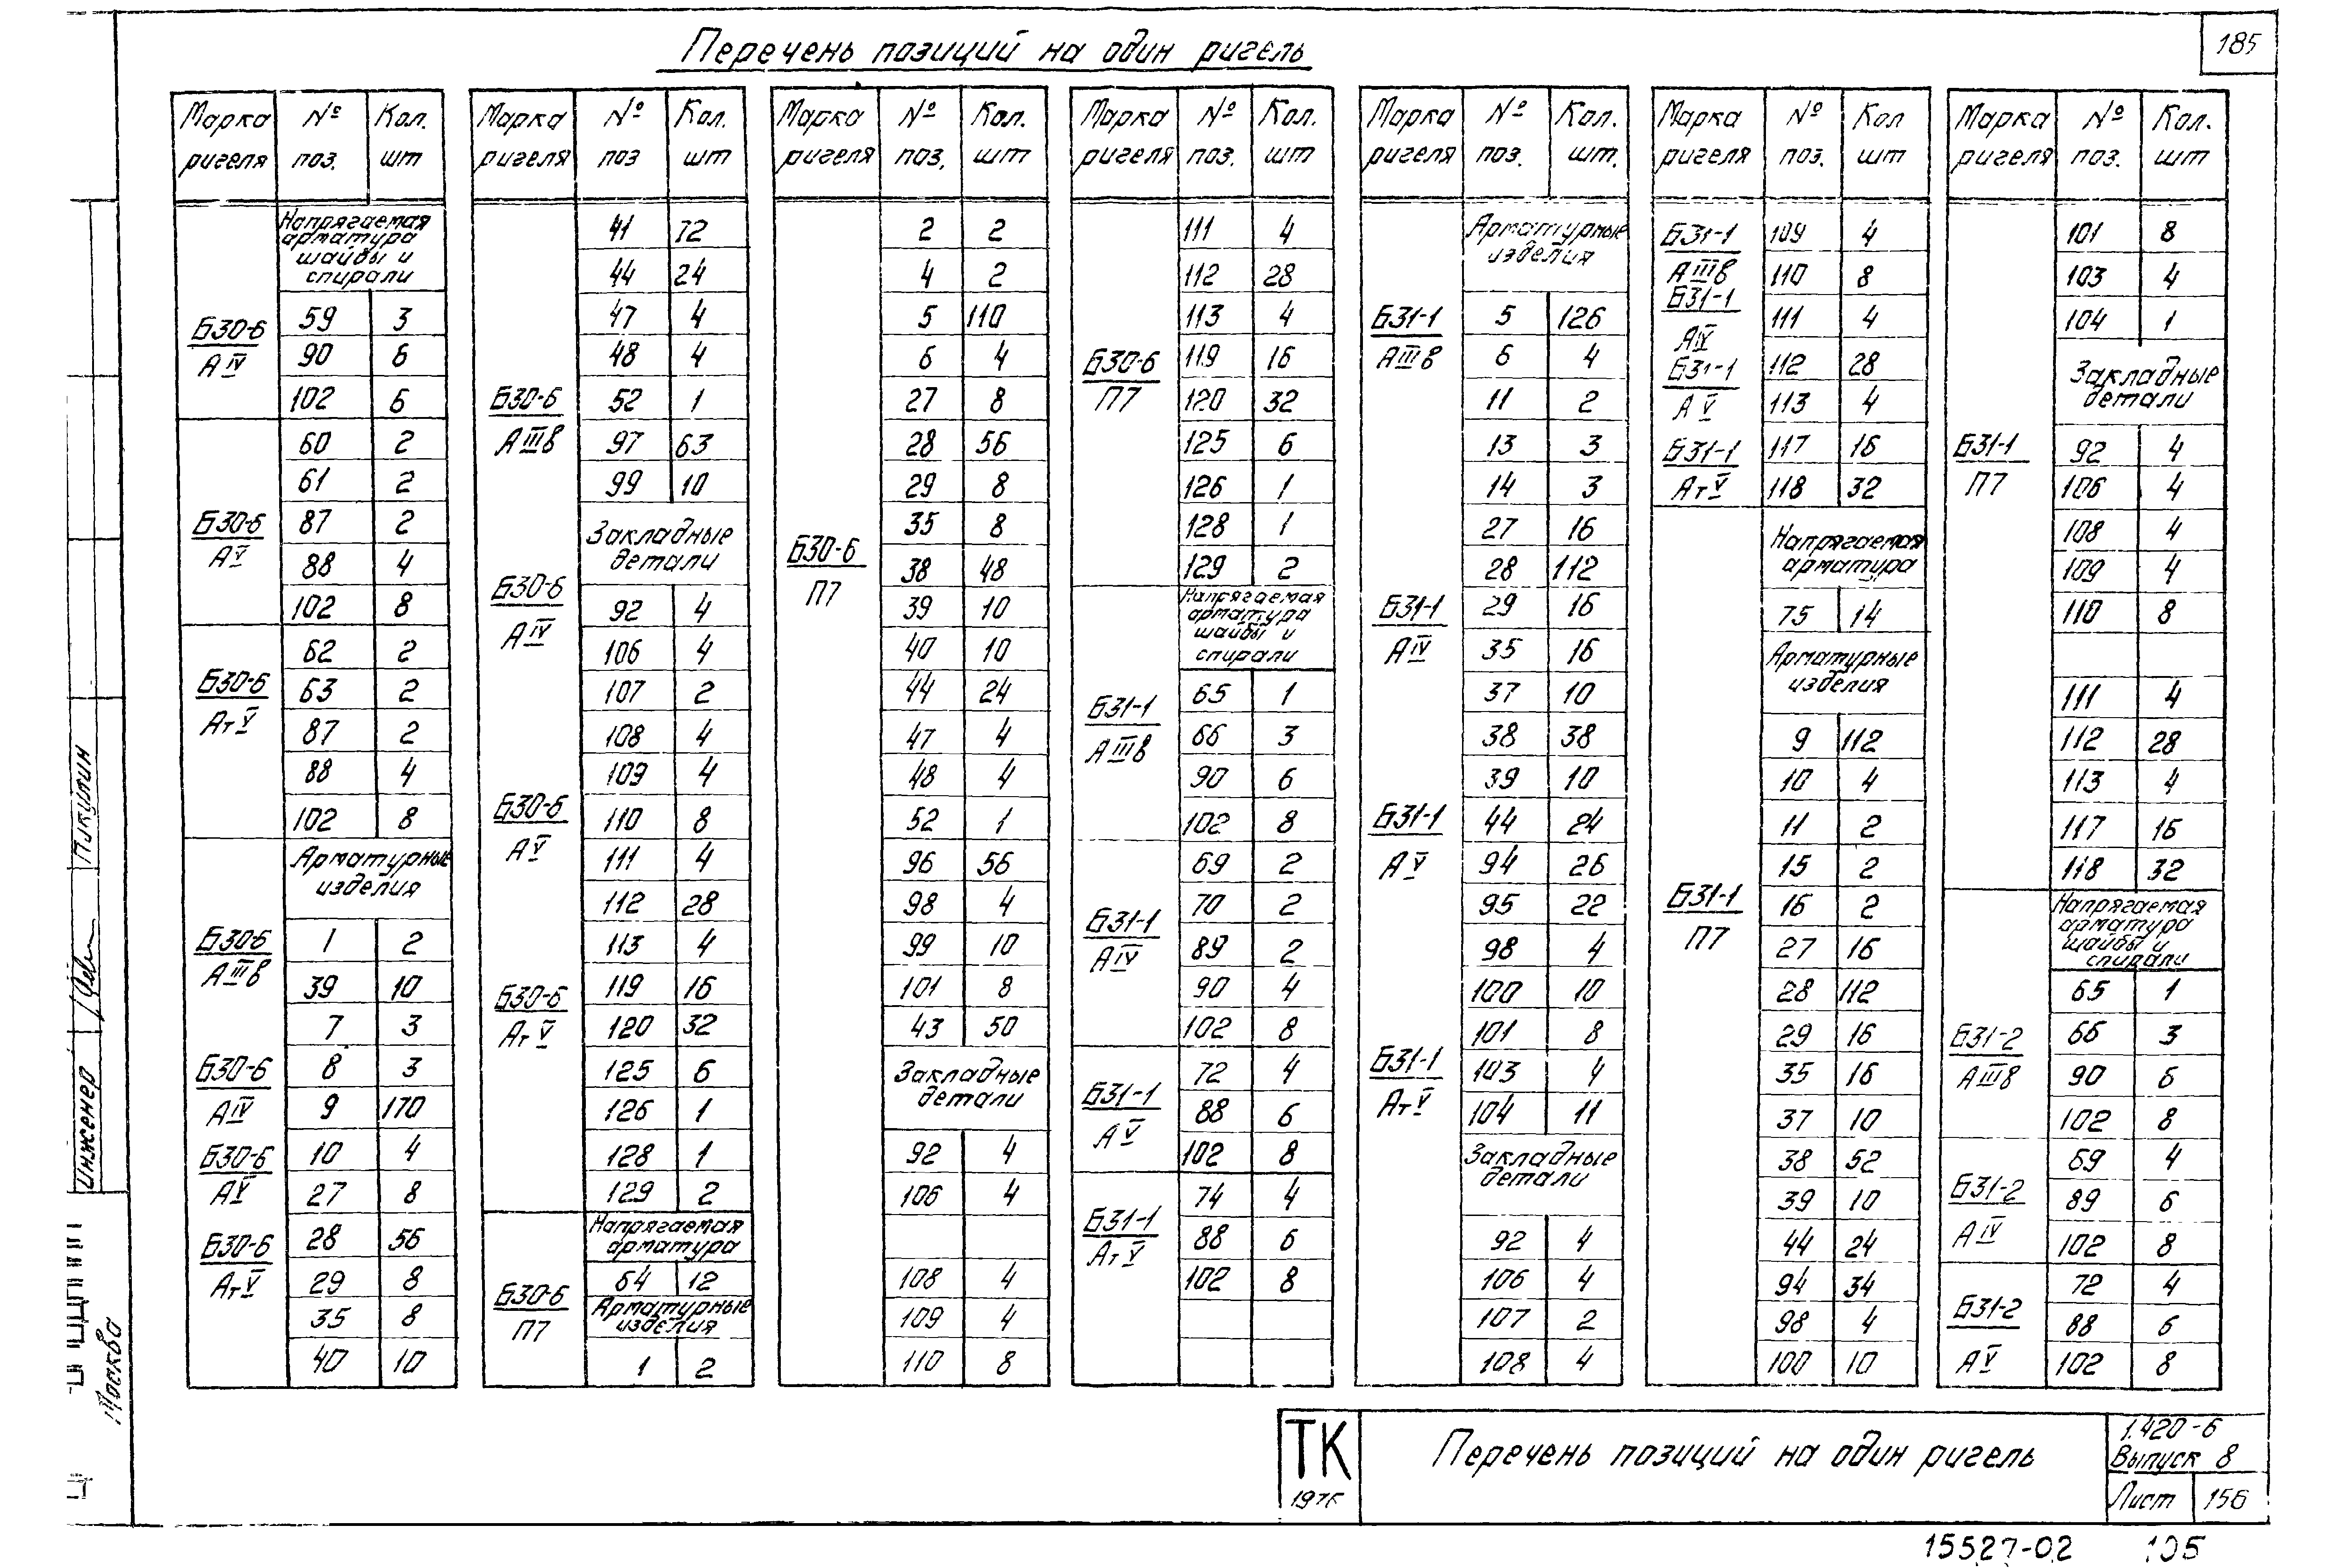 185
Перечень позиций на один ригель
Марка ригеля | № поз. | Кол. шт
Напрягаемая арматура шайбы и спирали
Б30-6 / АIV
59 3
90 6
102 6
Б30-6 / АV
60 2
61 2
87 2
88 4
102 8
Б30-6 / АтV
62 2
63 2
87 2
88 4
102 8
Арматурные изделия
Б30-6 / АIIIв
Б30-6 / АIV
Б30-6 / АV
Б30-6 / АтV
1 2
39 10
7 3
8 3
9 170
10 4
27 8
28 56
29 8
35 8
40 10
Марка ригеля | № поз | Кол. шт
Б30-6 / АIIIв
Б30-6 / АIV
Б30-6 / АV
Б30-6 / АтV
41 72
44 24
47 4
48 4
52 1
97 63
99 10
Закладные детали
92 4
106 4
107 2
108 4
109 4
110 8
111 4
112 28
113 4
119 16
120 32
125 6
126 1
128 1
129 2
Б30-6 / П7
Напрягаемая арматура
64 12
Арматурные изделия
1 2
Марка ригеля | № поз. | Кол. шт
Б30-6 / П7
2 2
4 2
5 110
6 4
27 8
28 56
29 8
35 8
38 48
39 10
40 10
44 24
47 4
48 4
52 1
96 56
98 4
99 10
101 8
43 50
Закладные детали
92 4
106 4
108 4
109 4
110 8
Марка ригеля | № поз. | Кол. шт
Б30-6 / П7
111 4
112 28
113 4
119 16
120 32
125 6
126 1
128 1
129 2
Напрягаемая арматура шайбы и спирали
Б31-1 / АIIIв
65 1
66 3
90 6
102 8
Б31-1 / АIV
69 2
70 2
89 2
90 4
102 8
Б31-1 / АV
72 4
88 6
102 8
Б31-1 / АтV
74 4
88 6
102 8
Марка ригеля | № поз. | Кол. шт.
Б31-1 / АIIIв
Б31-1 / АIV
Б31-1 / АV
Б31-1 / АтV
Арматурные изделия
5 126
6 4
11 2
13 3
14 3
27 16
28 112
29 16
35 16
37 10
38 38
39 10
44 24
94 26
95 22
98 4
100 10
101 8
103 4
104 11
Закладные детали
92 4
106 4
107 2
108 4
Марка ригеля | № поз. | Кол шт
Б31-1 / АIIIв
Б31-1 / АIV
Б31-1 / АV
Б31-1 / АтV
109 4
110 8
111 4
112 28
113 4
117 16
118 32
Б31-1 / П7
Напрягаемая арматура
75 14
Арматурные изделия
9 112
10 4
11 2
15 2
16 2
27 16
28 112
29 16
35 16
37 10
38 52
39 10
44 24
94 34
98 4
100 10
Марка ригеля | № поз. | Кол. шт
Б31-1 / П7
101 8
103 4
104 1
Закладные детали
92 4
106 4
108 4
109 4
110 8
111 4
112 28
113 4
117 16
118 32
Напрягаемая арматура шайбы и спирали
Б31-2 / АIIIв
65 1
66 3
90 6
102 8
Б31-2 / АIV
69 4
89 6
102 8
Б31-2 / АV
72 4
88 6
102 8
Инженер
Пикулин
Москва
ТК
1976
Перечень позиций на один ригель
1.420-6
Выпуск 8
Лист 156
15527-02 105